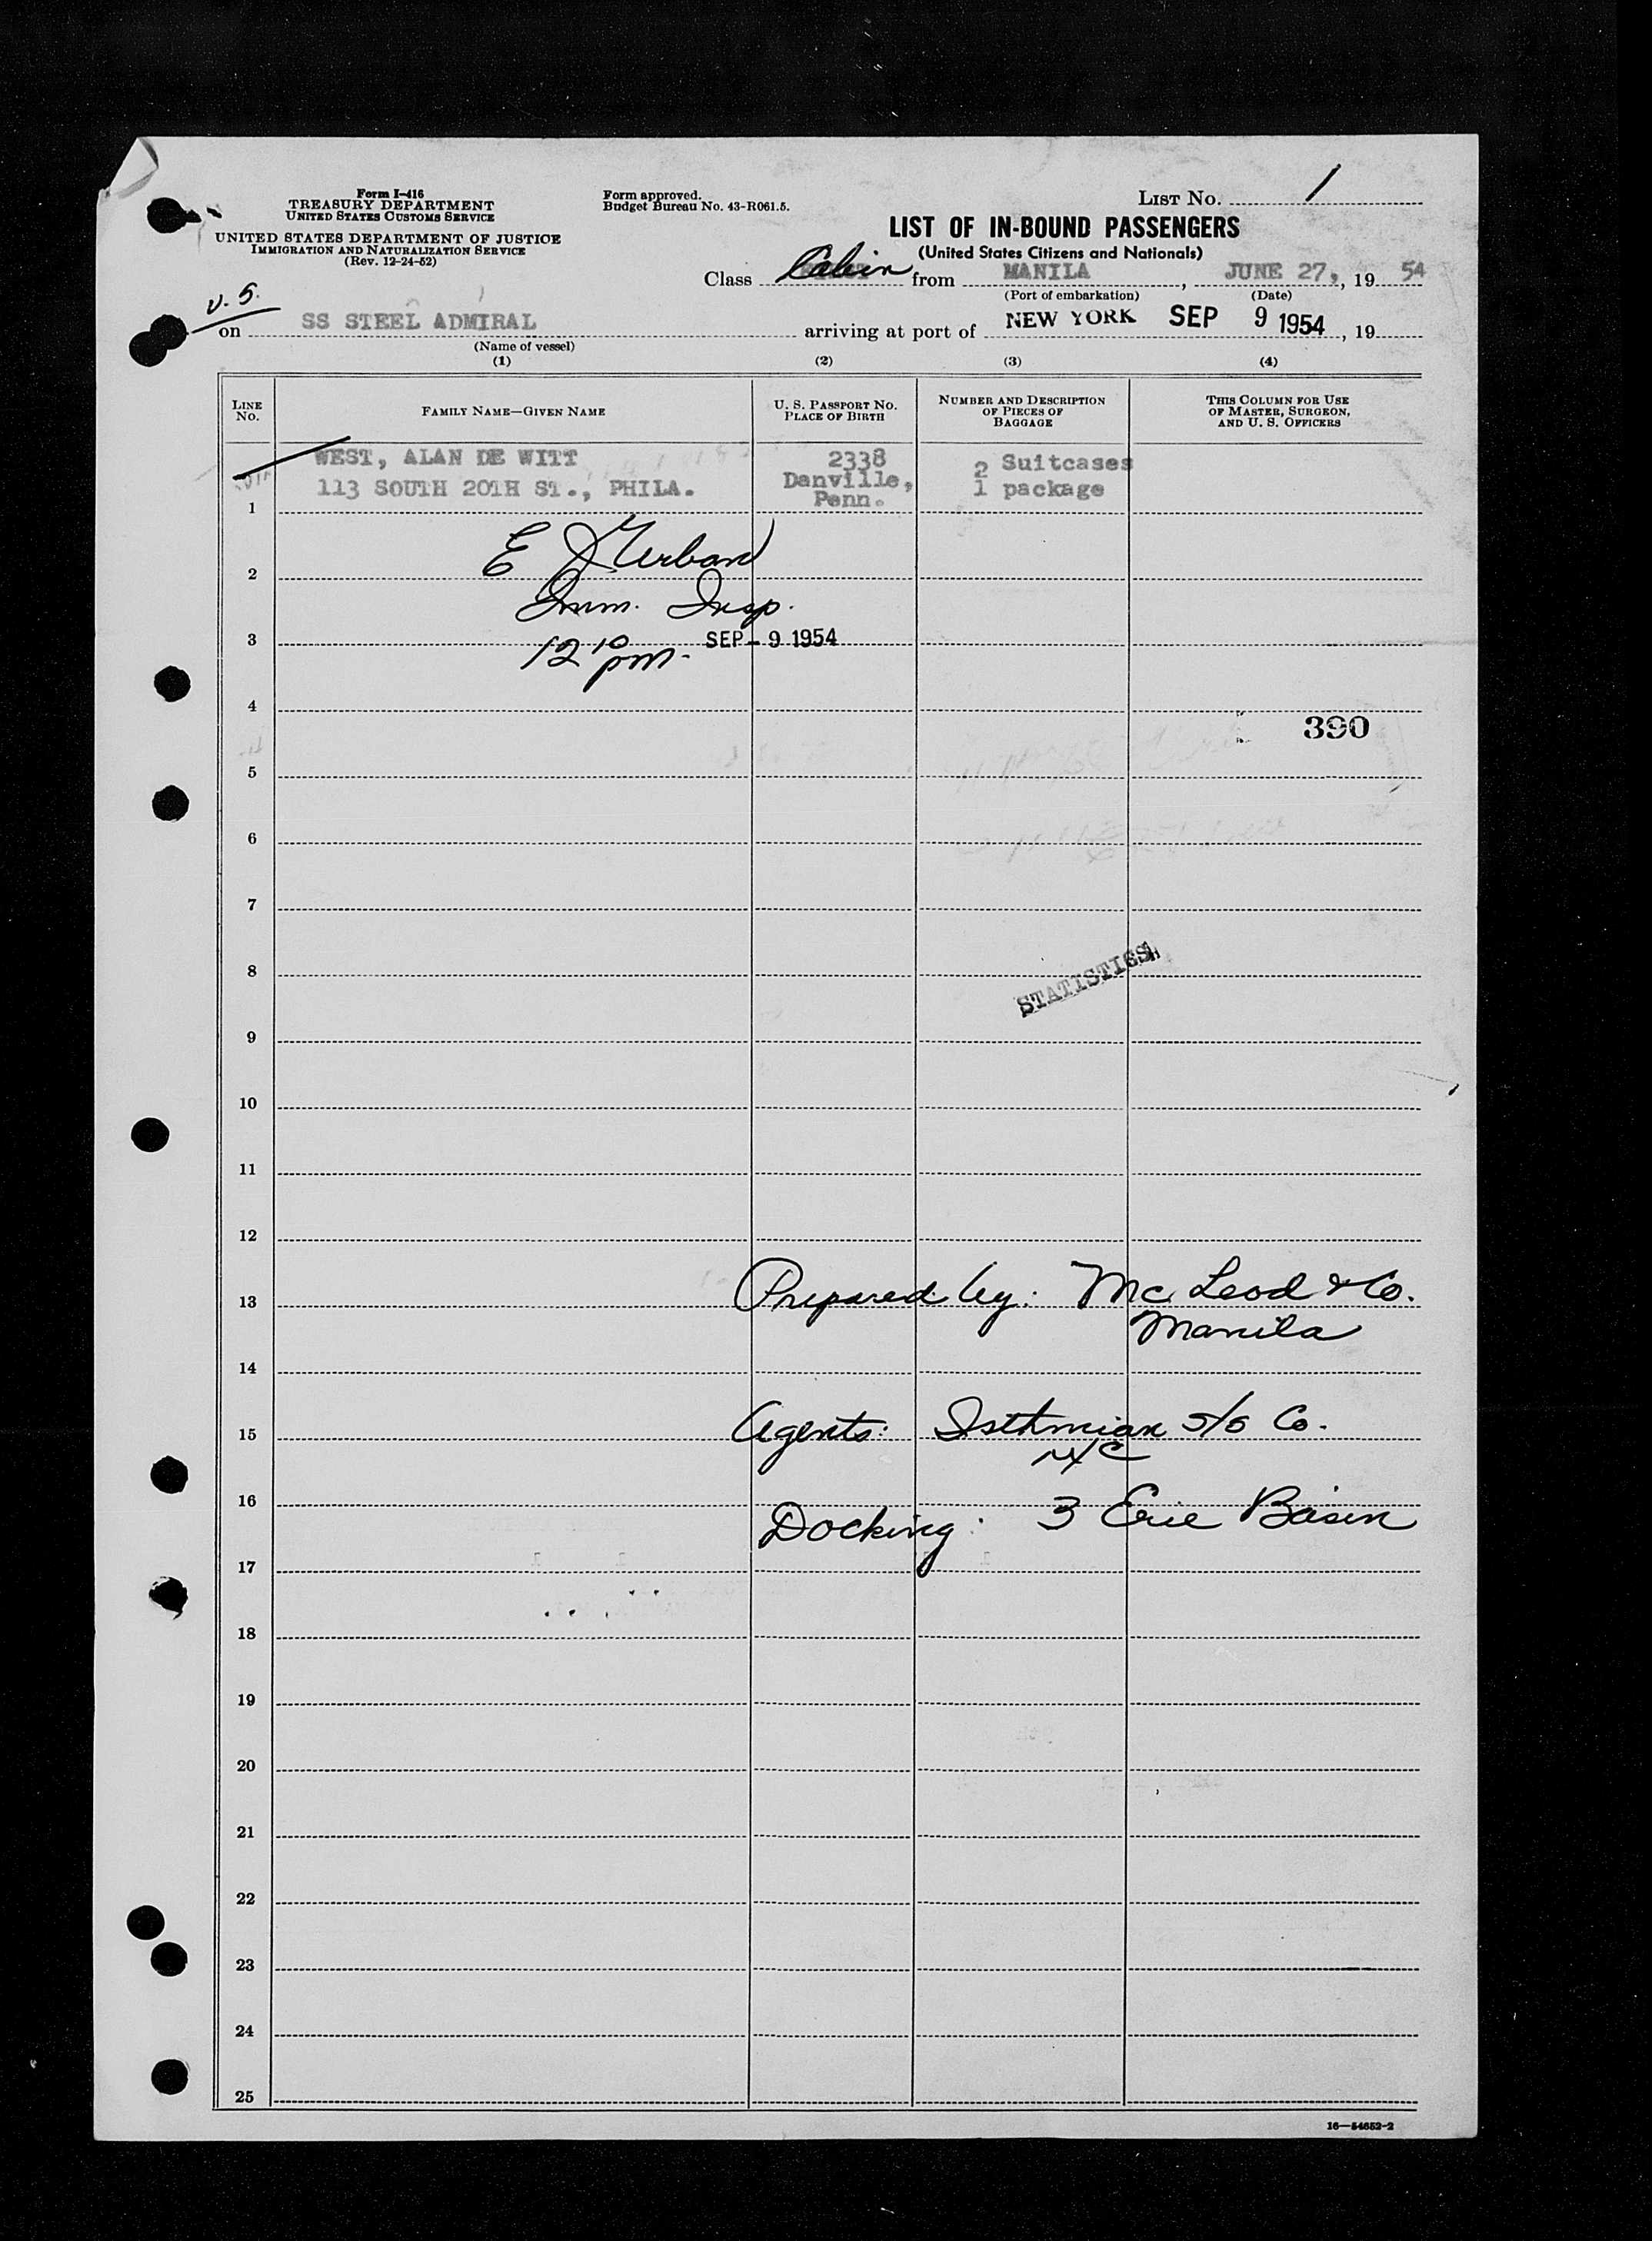 Form I-416
TREASURY DEPARTMENT
UNITED STATES CUSTOMS SERVICE
UNITED STATES DEPARTMENT OF JUSTICE
IMMIGRATION AND NATURALIZATION SERVICE
(Rev. 12-24-52)
Form approved.
Budget Bureau No. 43-R061.5.
LIST NO. 1
LIST OF IN-BOUND PASSENGERS
(United States Citizens and Nationals)
Class Cabin from MANILA, JUNE 27, 1954
(Port of embarkation) (Date)
U.S.
on SS STEEL ADMIRAL arriving at port of NEW YORK SEP 9 1954, 19
(Name of vessel)
(1) (2) (3) (4)
LINE NO.
FAMILY NAME—GIVEN NAME
U. S. PASSPORT NO.
PLACE OF BIRTH
NUMBER AND DESCRIPTION
OF PIECES OF
BAGGAGE
THIS COLUMN FOR USE
OF MASTER, SURGEON,
AND U. S. OFFICERS
WEST, ALAN DE WITT 2338 2 Suitcases
113 SOUTH 20TH ST., PHILA. Danville, 1 package
Penn.
1
E
2
Imm. Insp.
3
12 10 pm. SEP - 9 1954
4
390
5
6
7
8
STATISTICS
9
10
11
12
13 Prepared by: McLeod & Co.
Manila
14
15 Agents: Isthmian S/S Co.
NYC
16
Docking: 3 Erie Basin
17
18
19
20
21
22
23
24
25
16—54652-2